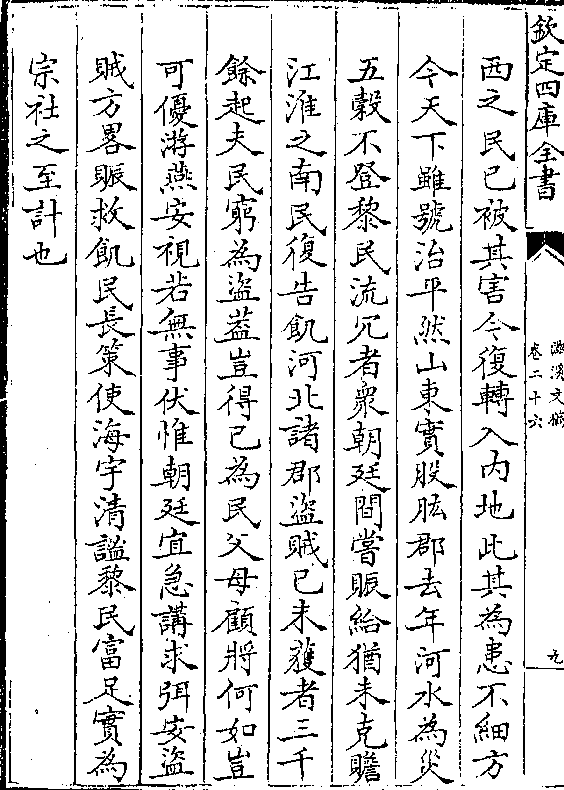 欽定四庫全書
滋溪文稿
卷二十六
九
西之民已被其害今復轉入内地此其為患不細方
今天下雖號治平然山東實股肱郡去年河水為災
五穀不登黎民流冗者衆朝廷間嘗賑給猶未克贍
江淮之南民復告飢河北諸郡盜賊已未獲者三千
餘起夫民窮為盜葢豈得已為民父母顧將何如豈
可優游燕安視若無事伏惟朝廷宜急講求弭安盜
賊方畧賑救飢民長策使海宇清謐黎民富足實為
宗社之至計也